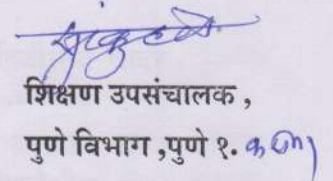 शिक्षण उपसंचालक ,
पुणे विभाग ,पुणे १.